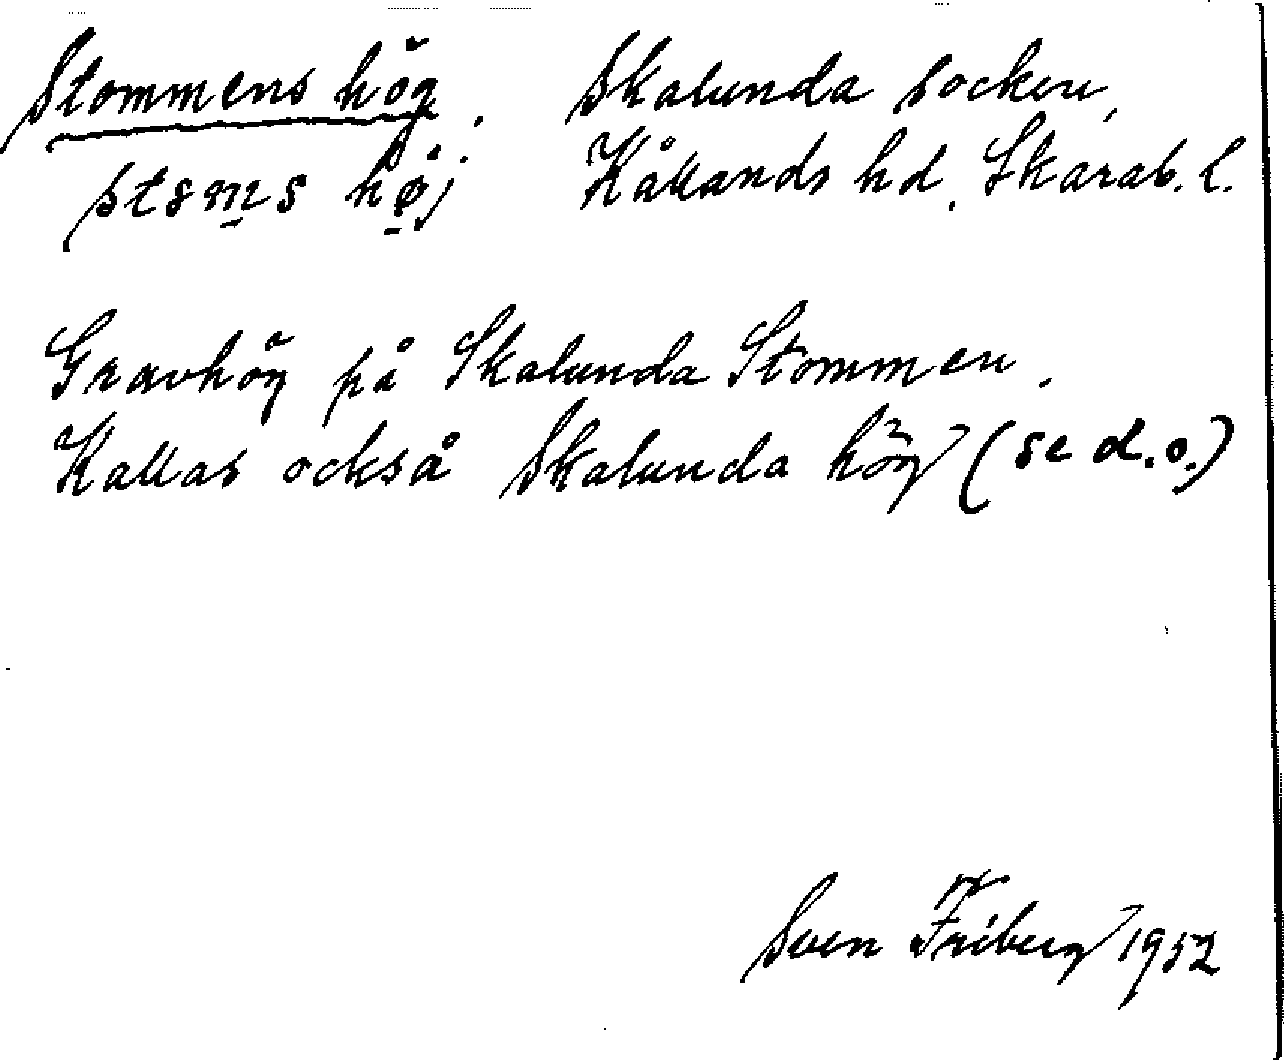 Stommens hög. Skalunda socken,
stɷm̲s hø̲̊j Kållands hd. Skarab. l.
Gravhög på Skalunda Stommen.
Kallas också Skalunda hög (se d.o.)
Sven Friberg 1952